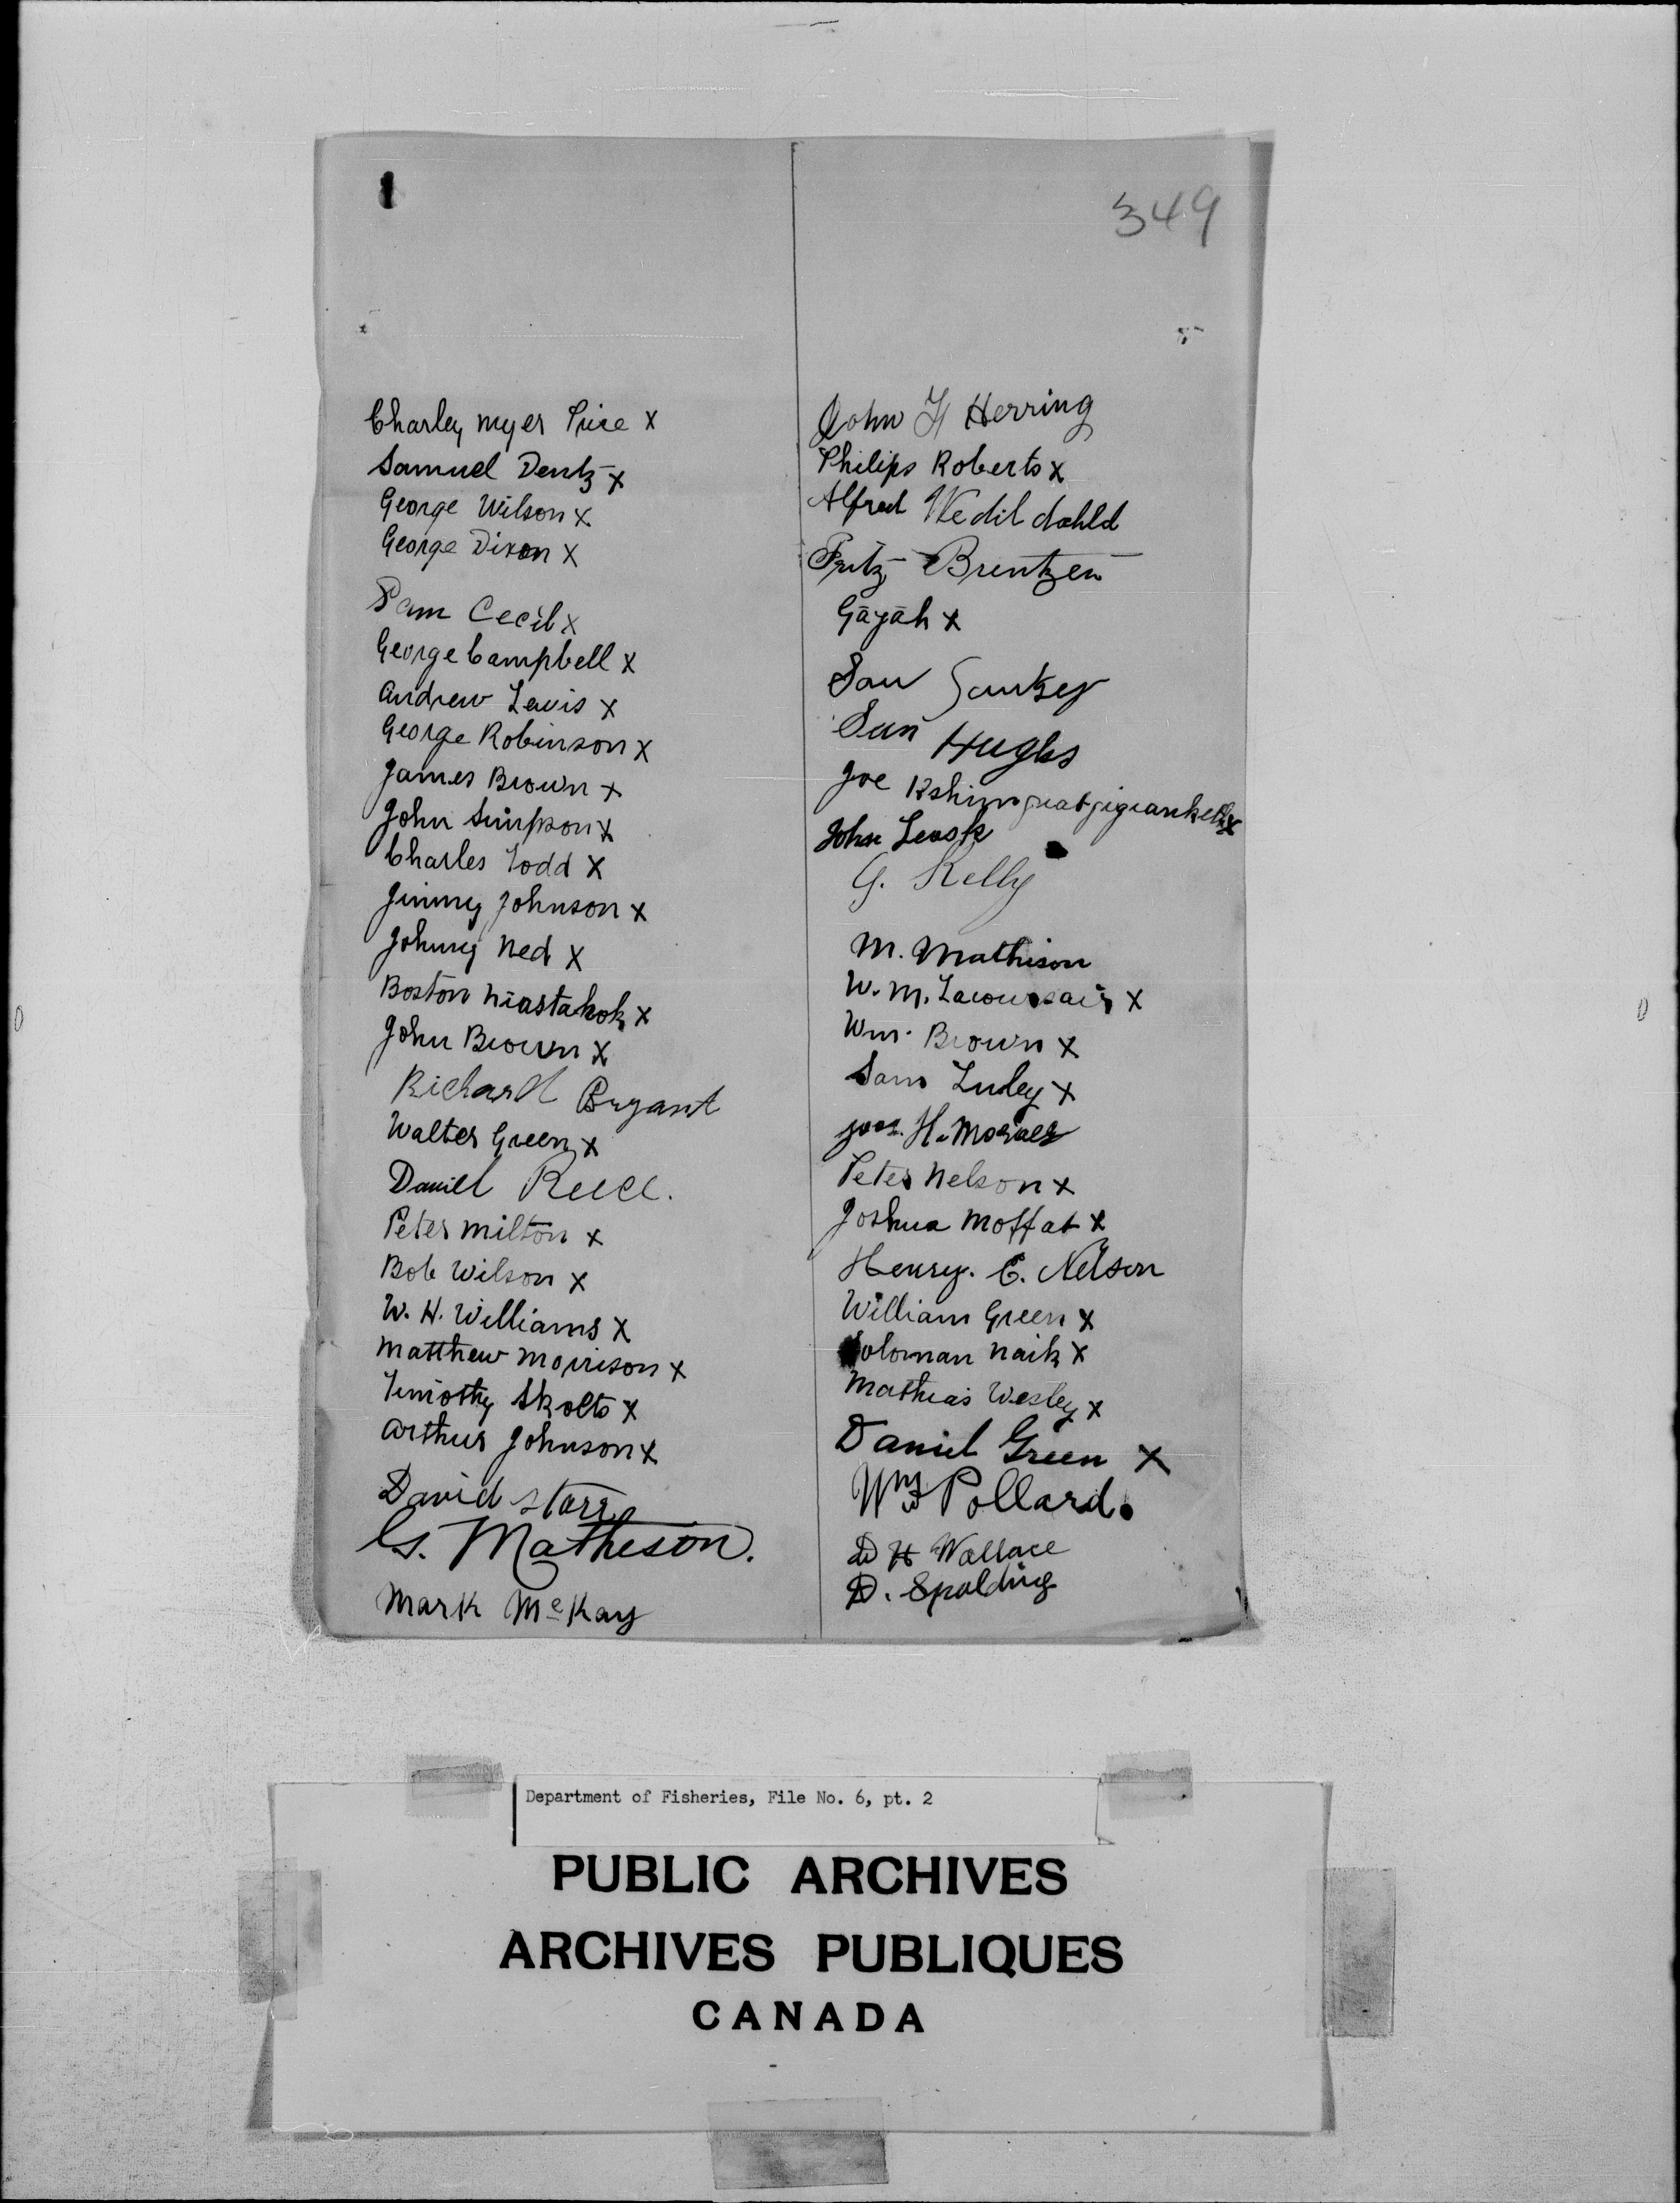 349
Charley Myer Price x
Samuel Dentz x
George Wilson x
George Dixon x
Sam Cecil x
George Campbell x
Andrew Lewis x
George Robinson x
James Brown x
John Simpson x
Charles Todd x
Jimmy Johnson x
Johnny Ned x
Boston x
John Brown x
Richard Bryant
Walter Green x
Daniel Reece.
Peter Milton x
Bob Wilson x
W. H. Williams x
Matthew Morrison x
Timothy Skolts x
Arthur Johnson x
David Starr
G. Matheson.
Mark McKay
John H Herring
Philips Roberts x
Alfred
Fritz Brentzen
Gāyāh x
Sam Sankey
Sam Hughs
Joe x
John Leask
G. Kelly
M. Mathison
W. M. x
Wm. Brown x
Sam Luley x
H. 
Peter Nelson x
Joshua Moffat x
Henry. E. Nelson
William Green x
Soloman Naik x
Mathias Wesley x
Daniel Green x
Wm Pollard.
D H Wallace
D. Spalding
Department of Fisheries, File No. 6, pt. 2
PUBLIC ARCHIVES
ARCHIVES PUBLIQUES
CANADA